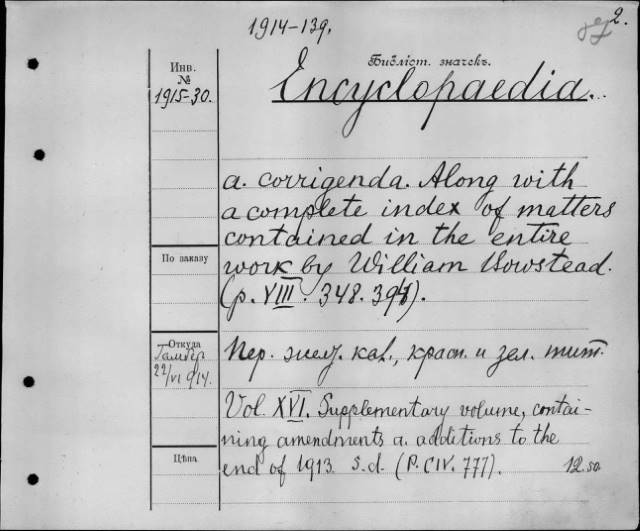 2.
1914-139.
Инв.
№
1915-30.
Библіот. значекъ.
Encyclopaedia.
a. corrigenda. Along with
a complete index of matters
contained in the entire
work by William Bowstead.
(p. VIII. 348. 394).
По заказу
Откуда
22/VI 914.
Пер. желт. кал., красн. и зел. тит.
Vol. XVI. Supplementary volume, contai-
ning amendments a. additions to the
end of 1913. s.d. (P. CIV. 777). 12.50
Цѣна